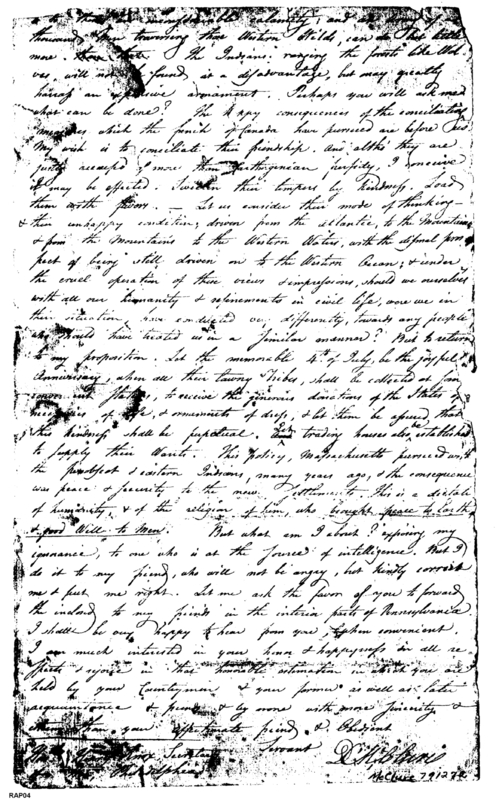 to this unmeasurable calamity; and
thousand Men traversing those Western Wilds, can do but little
more than this. The Indians ranging the forests like Wol-
ves, will not be found, is a disadvantage, but may greatly
harrass an offensive armament. Perhaps you will ask me
what can be done? The happy consequences of the conciliating
measures which the French of Canada have pursued are before us
My wish is to conciliate their friendship. And altho' they are
justly accused of more than Carthaginian perfidy, I conceive
it may be effected. Sweeten their tempers by kindness. Load
them with favors. — Let us consider their mode of thinking —
& their unhappy condition; driven from the atlantic, to the Mountains
& from the Mountains to the Western Waters, with the dismal pros-
pect of being still driven on to the Western Ocean; & under
the cruel operation of these views & impressions, should we ourselves
with all our humanity & refinements in civil life, were we in
their situation have conducted very differently, towards any people
who should have treated us in a similar manner? But to return
to my proposition. Let the memorable 4th of July, be the joyful
anniversary, when all their tawny Tribes, shall be collected at
convenient places, to receive the generous donations of the States of
necessaries of life, & ornaments of dress, & let them be assured that
this kindness shall be perpetual. Let trading houses also be established
to supply their Wants. This policy, Massachusetts pursued with
the Penobscot & eastern Indians, many years ago, & the consequence
was peace & security to the new settlements. This is a dictate
of humanity, & of the religion of him, who brought peace to Earth
& good Will to Men. But what am I about? exposing my
ignorance, to one who is at the source of intelligence. But I
do it to my friend, who will not be angry, but kindly correct
me & set me right. Let me ask the favor of you to forward
the inclosed to my friends in the interior parts of Pennsylvania
I shall be very happy to hear from you when convenient.
I am much interested in your honor & happyness in all re-
spects & rejoice in that honorable estimation in which you are
held by your Countrymen & your former as well as later
acquaintance & friends & by none with more sincerity &
than your affectionate friend & Obedient
Servant
Secretary
Philadelphia
McClure 791272
RAP04